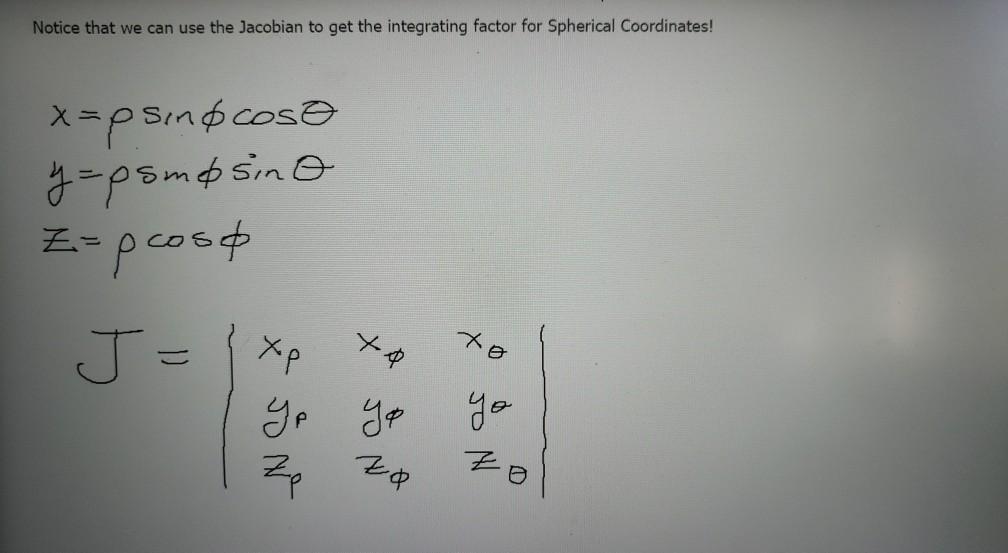 Notice that we can use the Jacobian to get the integrating factor for Spherical Coordinates!
x=ρsinϕcosθ
y=ρsinϕsinθ
z=ρcosϕ
J = | xρ xϕ xθ |
yρ yϕ yθ
zρ zϕ zθ